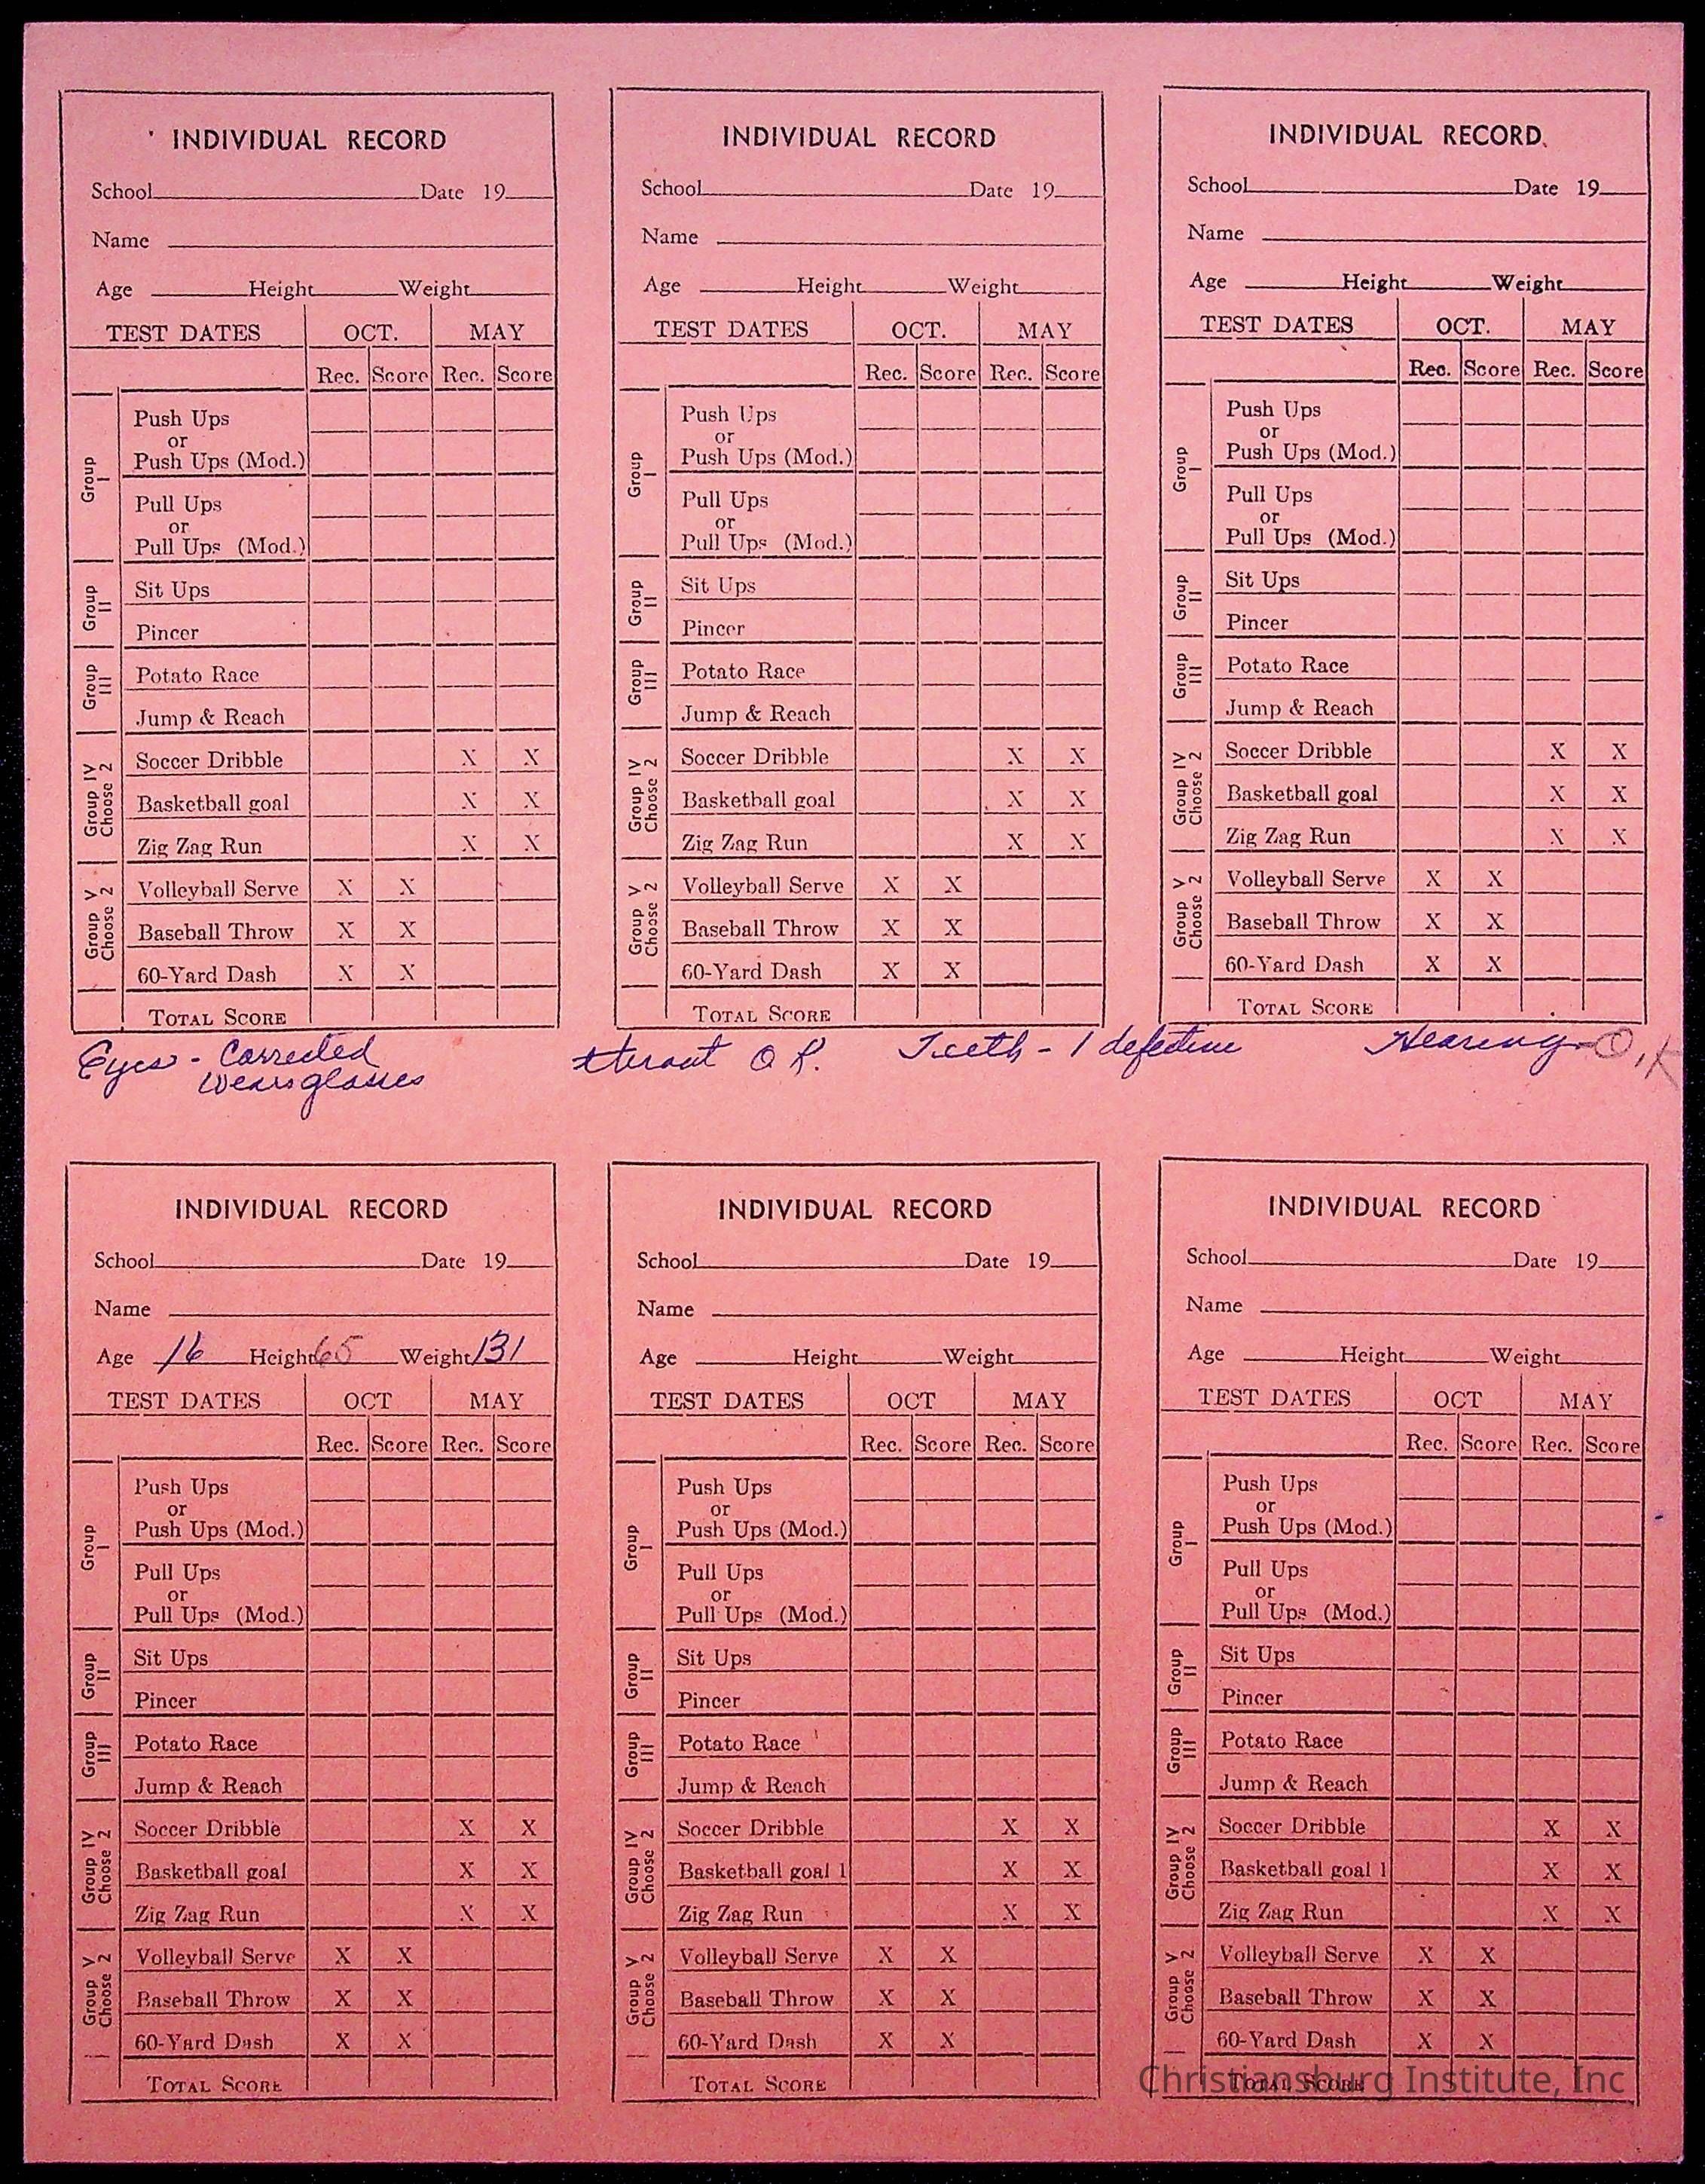 INDIVIDUAL RECORD
School Date 19
Name
Age Height Weight
TEST DATES OCT. MAY
Rec. Score Rec. Score
Group I
Push Ups
or
Push Ups (Mod.)
Pull Ups
or
Pull Ups (Mod.)
Group II
Sit Ups
Pincer
Group III
Potato Race
Jump & Reach
Group IV Choose 2
Soccer Dribble X X
Basketball goal X X
Zig Zag Run X X
Group V Choose 2
Volleyball Serve X X
Baseball Throw X X
60-Yard Dash X X
TOTAL SCORE
INDIVIDUAL RECORD
School Date 19
Name
Age Height Weight
TEST DATES OCT. MAY
Rec. Score Rec. Score
Group I
Push Ups
or
Push Ups (Mod.)
Pull Ups
or
Pull Ups (Mod.)
Group II
Sit Ups
Pincer
Group III
Potato Race
Jump & Reach
Group IV Choose 2
Soccer Dribble X X
Basketball goal X X
Zig Zag Run X X
Group V Choose 2
Volleyball Serve X X
Baseball Throw X X
60-Yard Dash X X
TOTAL SCORE
INDIVIDUAL RECORD
School Date 19
Name
Age Height Weight
TEST DATES OCT. MAY
Rec. Score Rec. Score
Group I
Push Ups
or
Push Ups (Mod.)
Pull Ups
or
Pull Ups (Mod.)
Group II
Sit Ups
Pincer
Group III
Potato Race
Jump & Reach
Group IV Choose 2
Soccer Dribble X X
Basketball goal X X
Zig Zag Run X X
Group V Choose 2
Volleyball Serve X X
Baseball Throw X X
60-Yard Dash X X
TOTAL SCORE
Eyes - Corrected
Wears glasses
throat O K. Teeth - 1 defective Hearing - O.K
INDIVIDUAL RECORD
School Date 19
Name
Age 16 Height 65 Weight 131
TEST DATES OCT MAY
Rec. Score Rec. Score
Group I
Push Ups
or
Push Ups (Mod.)
Pull Ups
or
Pull Ups (Mod.)
Group II
Sit Ups
Pincer
Group III
Potato Race
Jump & Reach
Group IV Choose 2
Soccer Dribble X X
Basketball goal X X
Zig Zag Run X X
Group V Choose 2
Volleyball Serve X X
Baseball Throw X X
60-Yard Dash X X
TOTAL SCORE
INDIVIDUAL RECORD
School Date 19
Name
Age Height Weight
TEST DATES OCT MAY
Rec. Score Rec. Score
Group I
Push Ups
or
Push Ups (Mod.)
Pull Ups
or
Pull Ups (Mod.)
Group II
Sit Ups
Pincer
Group III
Potato Race
Jump & Reach
Group IV Choose 2
Soccer Dribble X X
Basketball goal 1 X X
Zig Zag Run X X
Group V Choose 2
Volleyball Serve X X
Baseball Throw X X
60-Yard Dash X X
TOTAL SCORE
INDIVIDUAL RECORD
School Date 19
Name
Age Height Weight
TEST DATES OCT MAY
Rec. Score Rec. Score
Group I
Push Ups
or
Push Ups (Mod.)
Pull Ups
or
Pull Ups (Mod.)
Group II
Sit Ups
Pincer
Group III
Potato Race
Jump & Reach
Group IV Choose 2
Soccer Dribble X X
Basketball goal 1 X X
Zig Zag Run X X
Group V Choose 2
Volleyball Serve X X
Baseball Throw X X
60-Yard Dash X X
TOTAL SCORE
Christiansburg Institute, Inc